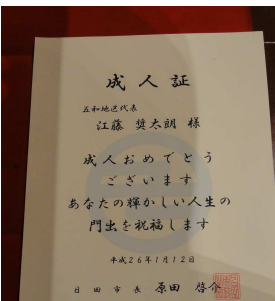 成人証
五和地区代表
江藤 奨太朗 様
成人おめでとう
ございます
あなたの輝かしい人生の
門出を祝福します
平成26年1月12日
日田市長 原田 啓介